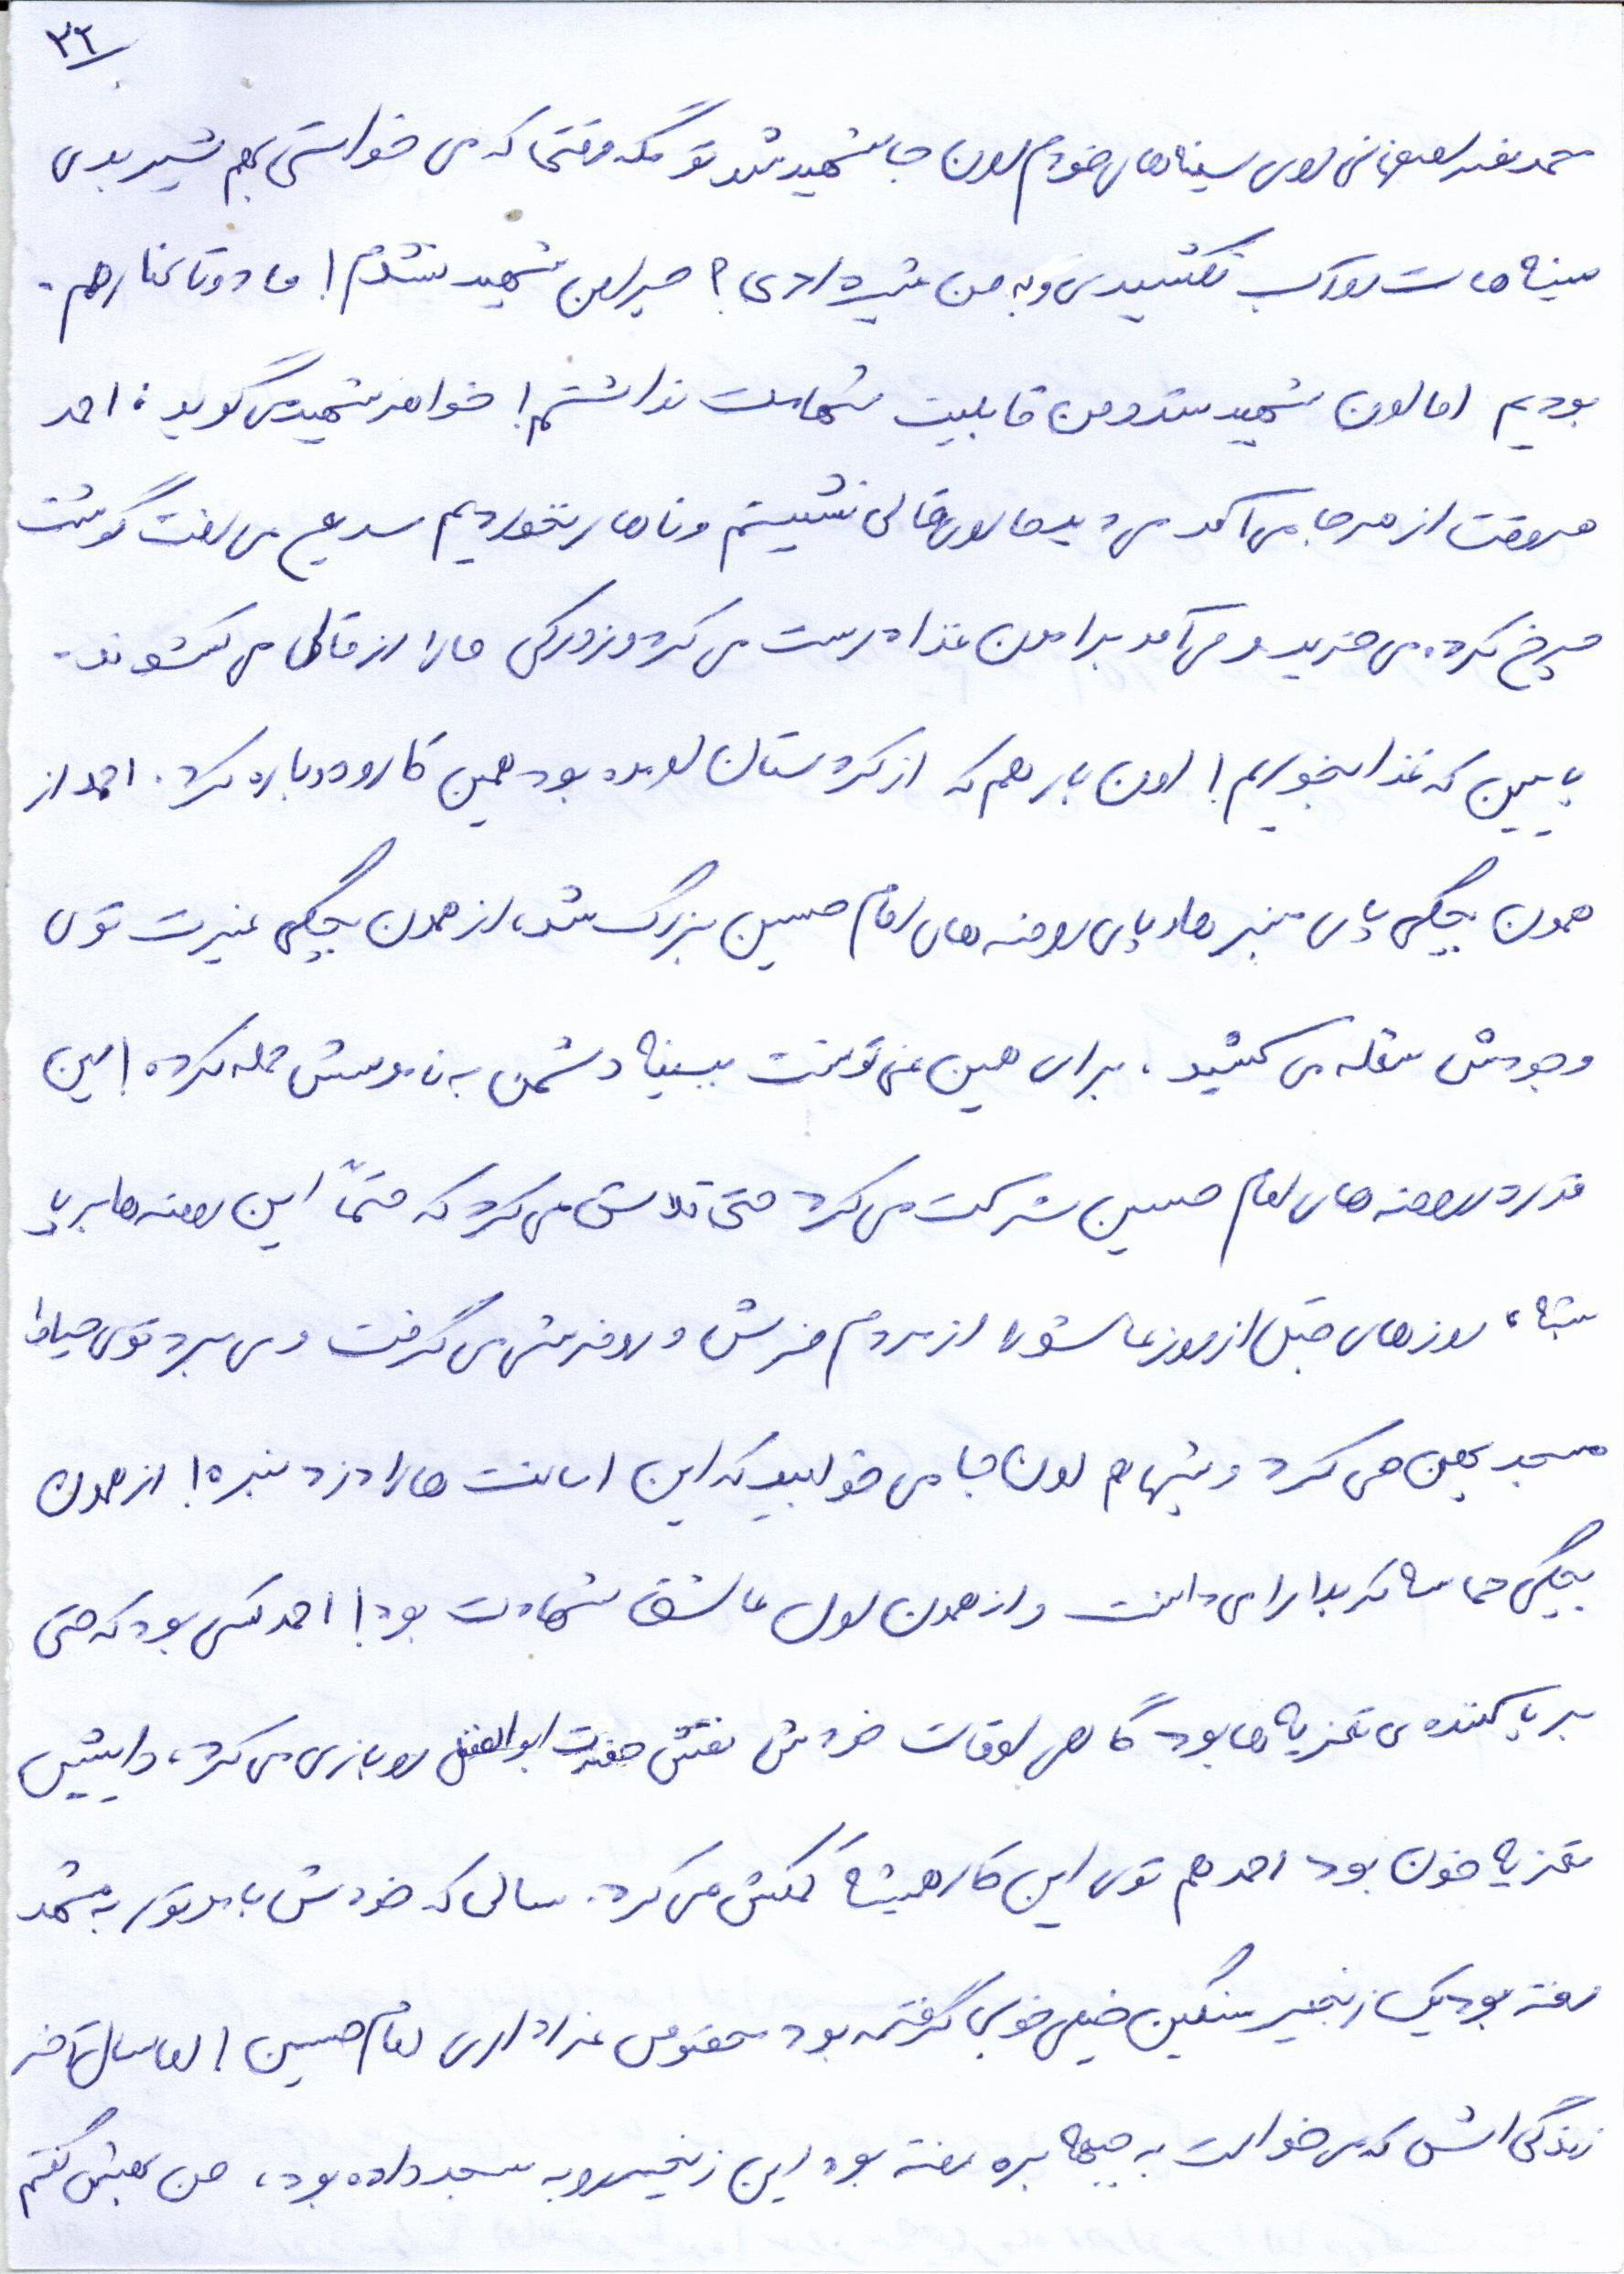 ۳۲
محمد نصر اصفهانی روی سینه‌های خودم اون جا شهید شد تو مگه وقتی که می خواستی بهم شیر بدی
سینه هات رو آب نکشیدی و به من شیر دادی؟ چرا من شهید نشدم! ما دوتا کنار هم
بودیم اما اون شهید شد و من قابلیت شهادت نداشتم! خواهر شهید می گوید: احمد
هروقت از هرجا می آمد می دید ما روی قالی نشستیم و ناهار نخوردیم سریع می رفت گوشت
چرخ کرده می خرید و می آمد برامون غذا درست می کرد و زورکی ما را از قالی می کشوند
پایین که غذا بخوریم! اون بار هم که از کردستان اومده بود همین کارو دوباره کرد. احمد از
همون بچگی پای منبرها و پای روضه های امام حسین بزرگ شد، از همون بچگی غیرت توی
وجودش شعله می کشید، برای همین نمی تونست ببینه دشمن به ناموسش حمله کرده! این
قدر در روضه های امام حسین شرکت می کرد حتی تلاش می کرد که حتماً این روضه ها برپا
بشه، روزهای قبل از روز عاشورا از مردم فرش و روفرشی می گرفت و می برد توی حیاط
مسجد پهن می کرد و شبها هم اون جا می خوابید که این امانت ها را دزد نبره! از همون
بچگی حماسه کربلا را می دانست و از همون اول عاشق شهادت بود! احمد کسی بود که حتی
برپا کننده ی تعزیه ها بود گاهی اوقات خودش نقش حضرت ابوالفضل رو بازی می کرد، داییش
تعزیه خون بود احمد هم توی این کار همیشه کمکش می کرد. سالی که خودش با موتور به مشهد
رفته بود یک زنجیر سنگین خیلی خوبی گرفته بود مخصوص عزاداری امام حسین! اما سال آخر
زندگی اش که می خواست به جبهه بره رفته بود این زنجیر رو به مسجد داده بود، من بهش گفتم